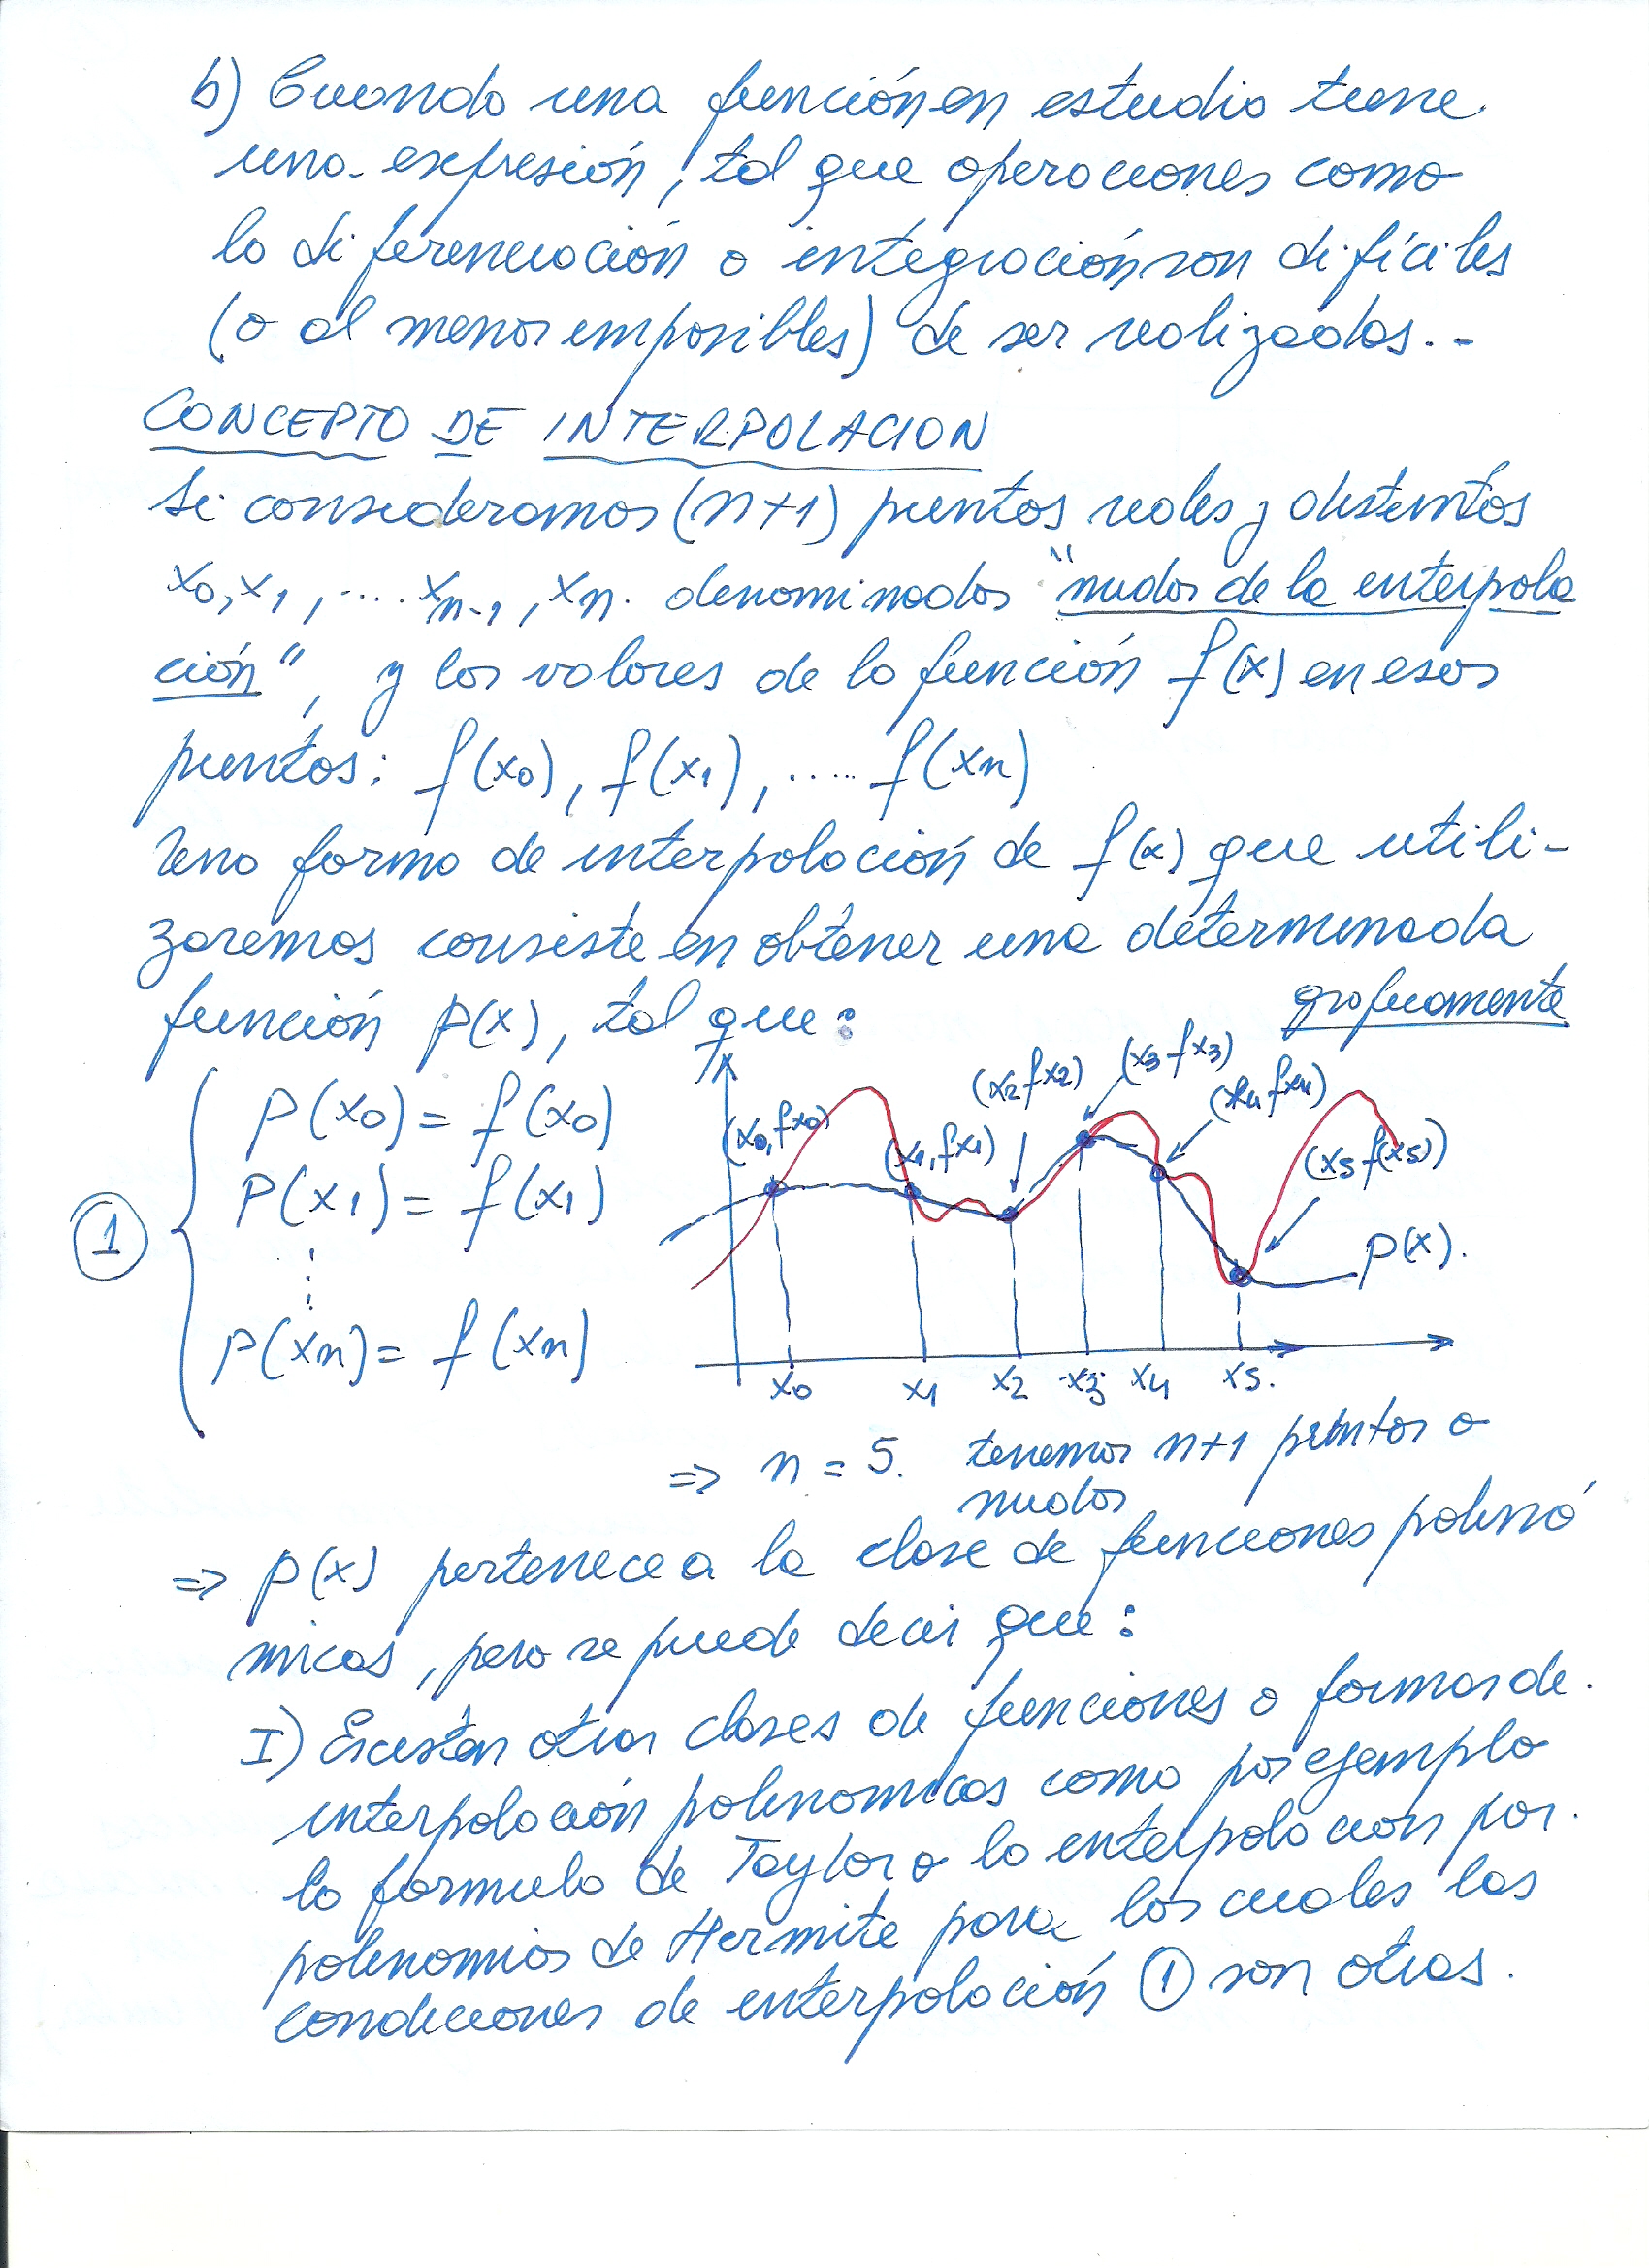 b) Cuando una función en estudio tiene
una expresión, tal que operaciones como
la diferenciación o integración son difíciles
(o al menos imposibles) de ser realizadas.-
CONCEPTO DE INTERPOLACION
Si consideramos (n+1) puntos reales y distintos
x0, x1, .... xn-1, xn. denominados "nudos de la interpola
ción", y los valores de la función f(x) en esos
puntos: f(x0), f(x1), ..... f(xn)
Una forma de interpolación de f(x) que utili-
zaremos consiste en obtener una determinada
función p(x), tal que:
graficamente
P(x0) = f(x0)
P(x1) = f(x1)
⋮
P(xn) = f(xn)
1
(x0, fx0)
(x1, fx1)
(x2 fx2)
(x3 fx3)
(x4 fx4)
(x5 f(x5))
P(x).
x0 x1 x2 x3 x4 x5.
=> n = 5. tenemos n+1 puntos o
nudos
=> p(x) pertenece a la clase de funciones polinó
micas, pero se puede decir que:
I) Existen otras clases de funciones o formas de.
interpolación polinomicas como por ejemplo
la formula de Taylor o la interpolacion por.
polinomios de Hermite para los cuales las
condiciones de interpolación 1 son otras.